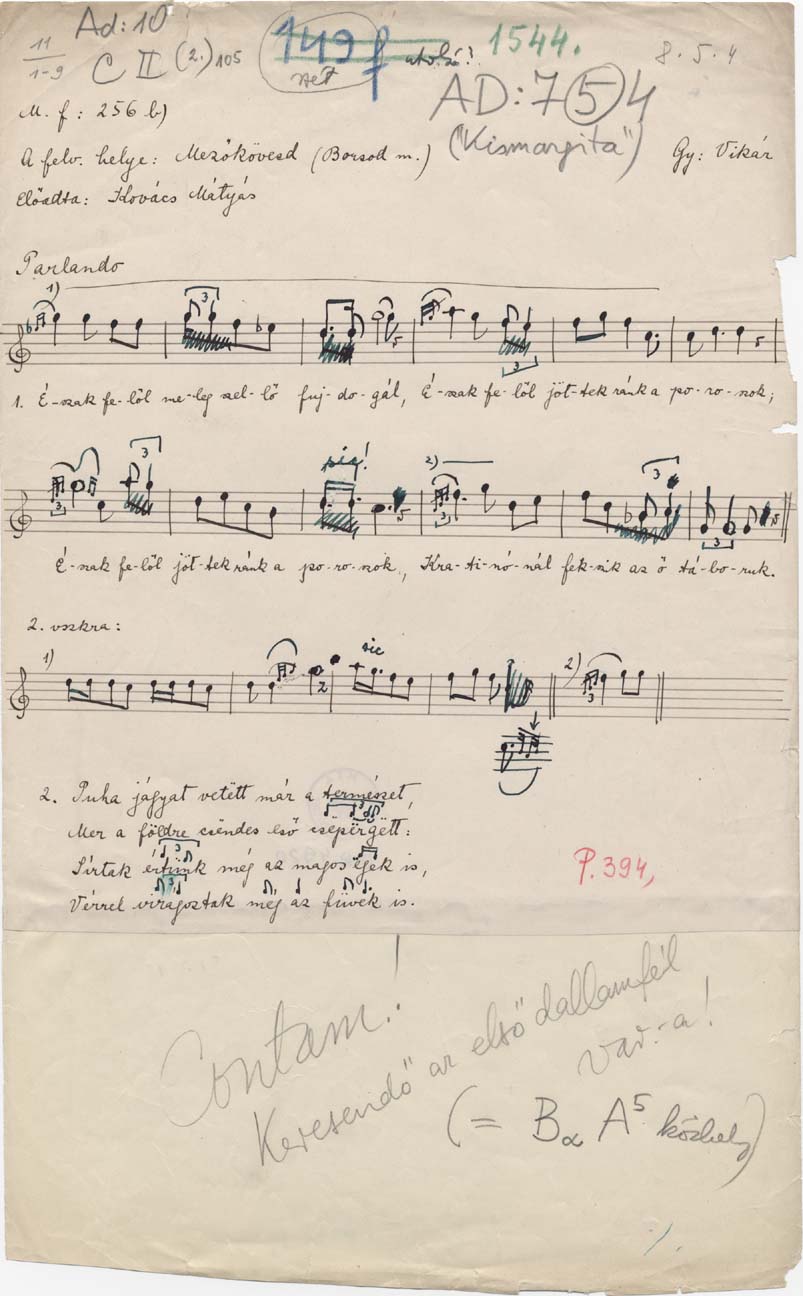 11/1-9 Ad: 10 C II (2.) 105 149 f 1544. 8. 5. 4
AD: 7 5 4
M. f: 256 b)
("Kismargita")
A felv. helye: Mezőkövesd (Borsod m.) Gy: Vikár
Előadta: Kovács Mátyás
Parlando
1)
3 3
1. É-szak fe-lől me-leg szel-lő fuj-do-gál, É-szak fe-lől jöt-tek ránk a po-ro-szok;
3 sic! 2) 3
3 3 3
É-szak fe-lől jöt-tek ránk a po-ro-szok, Kra-ti-nó-nál fek-szik az ő tá-bo-ruk.
2. vszkra:
1) sic 2)
2 3
2. Puha jágyat vetëtt már a tërmészet,
Mer a fődre csëndes eső csëpërgëtt:
Sírtak értünk még az magos egek is,
Vérrel virágoztak még az füvek is.
P. 394,
Contam!
Keresendő az első dallamfél
var.-a!
(= Bα A5 közhely)